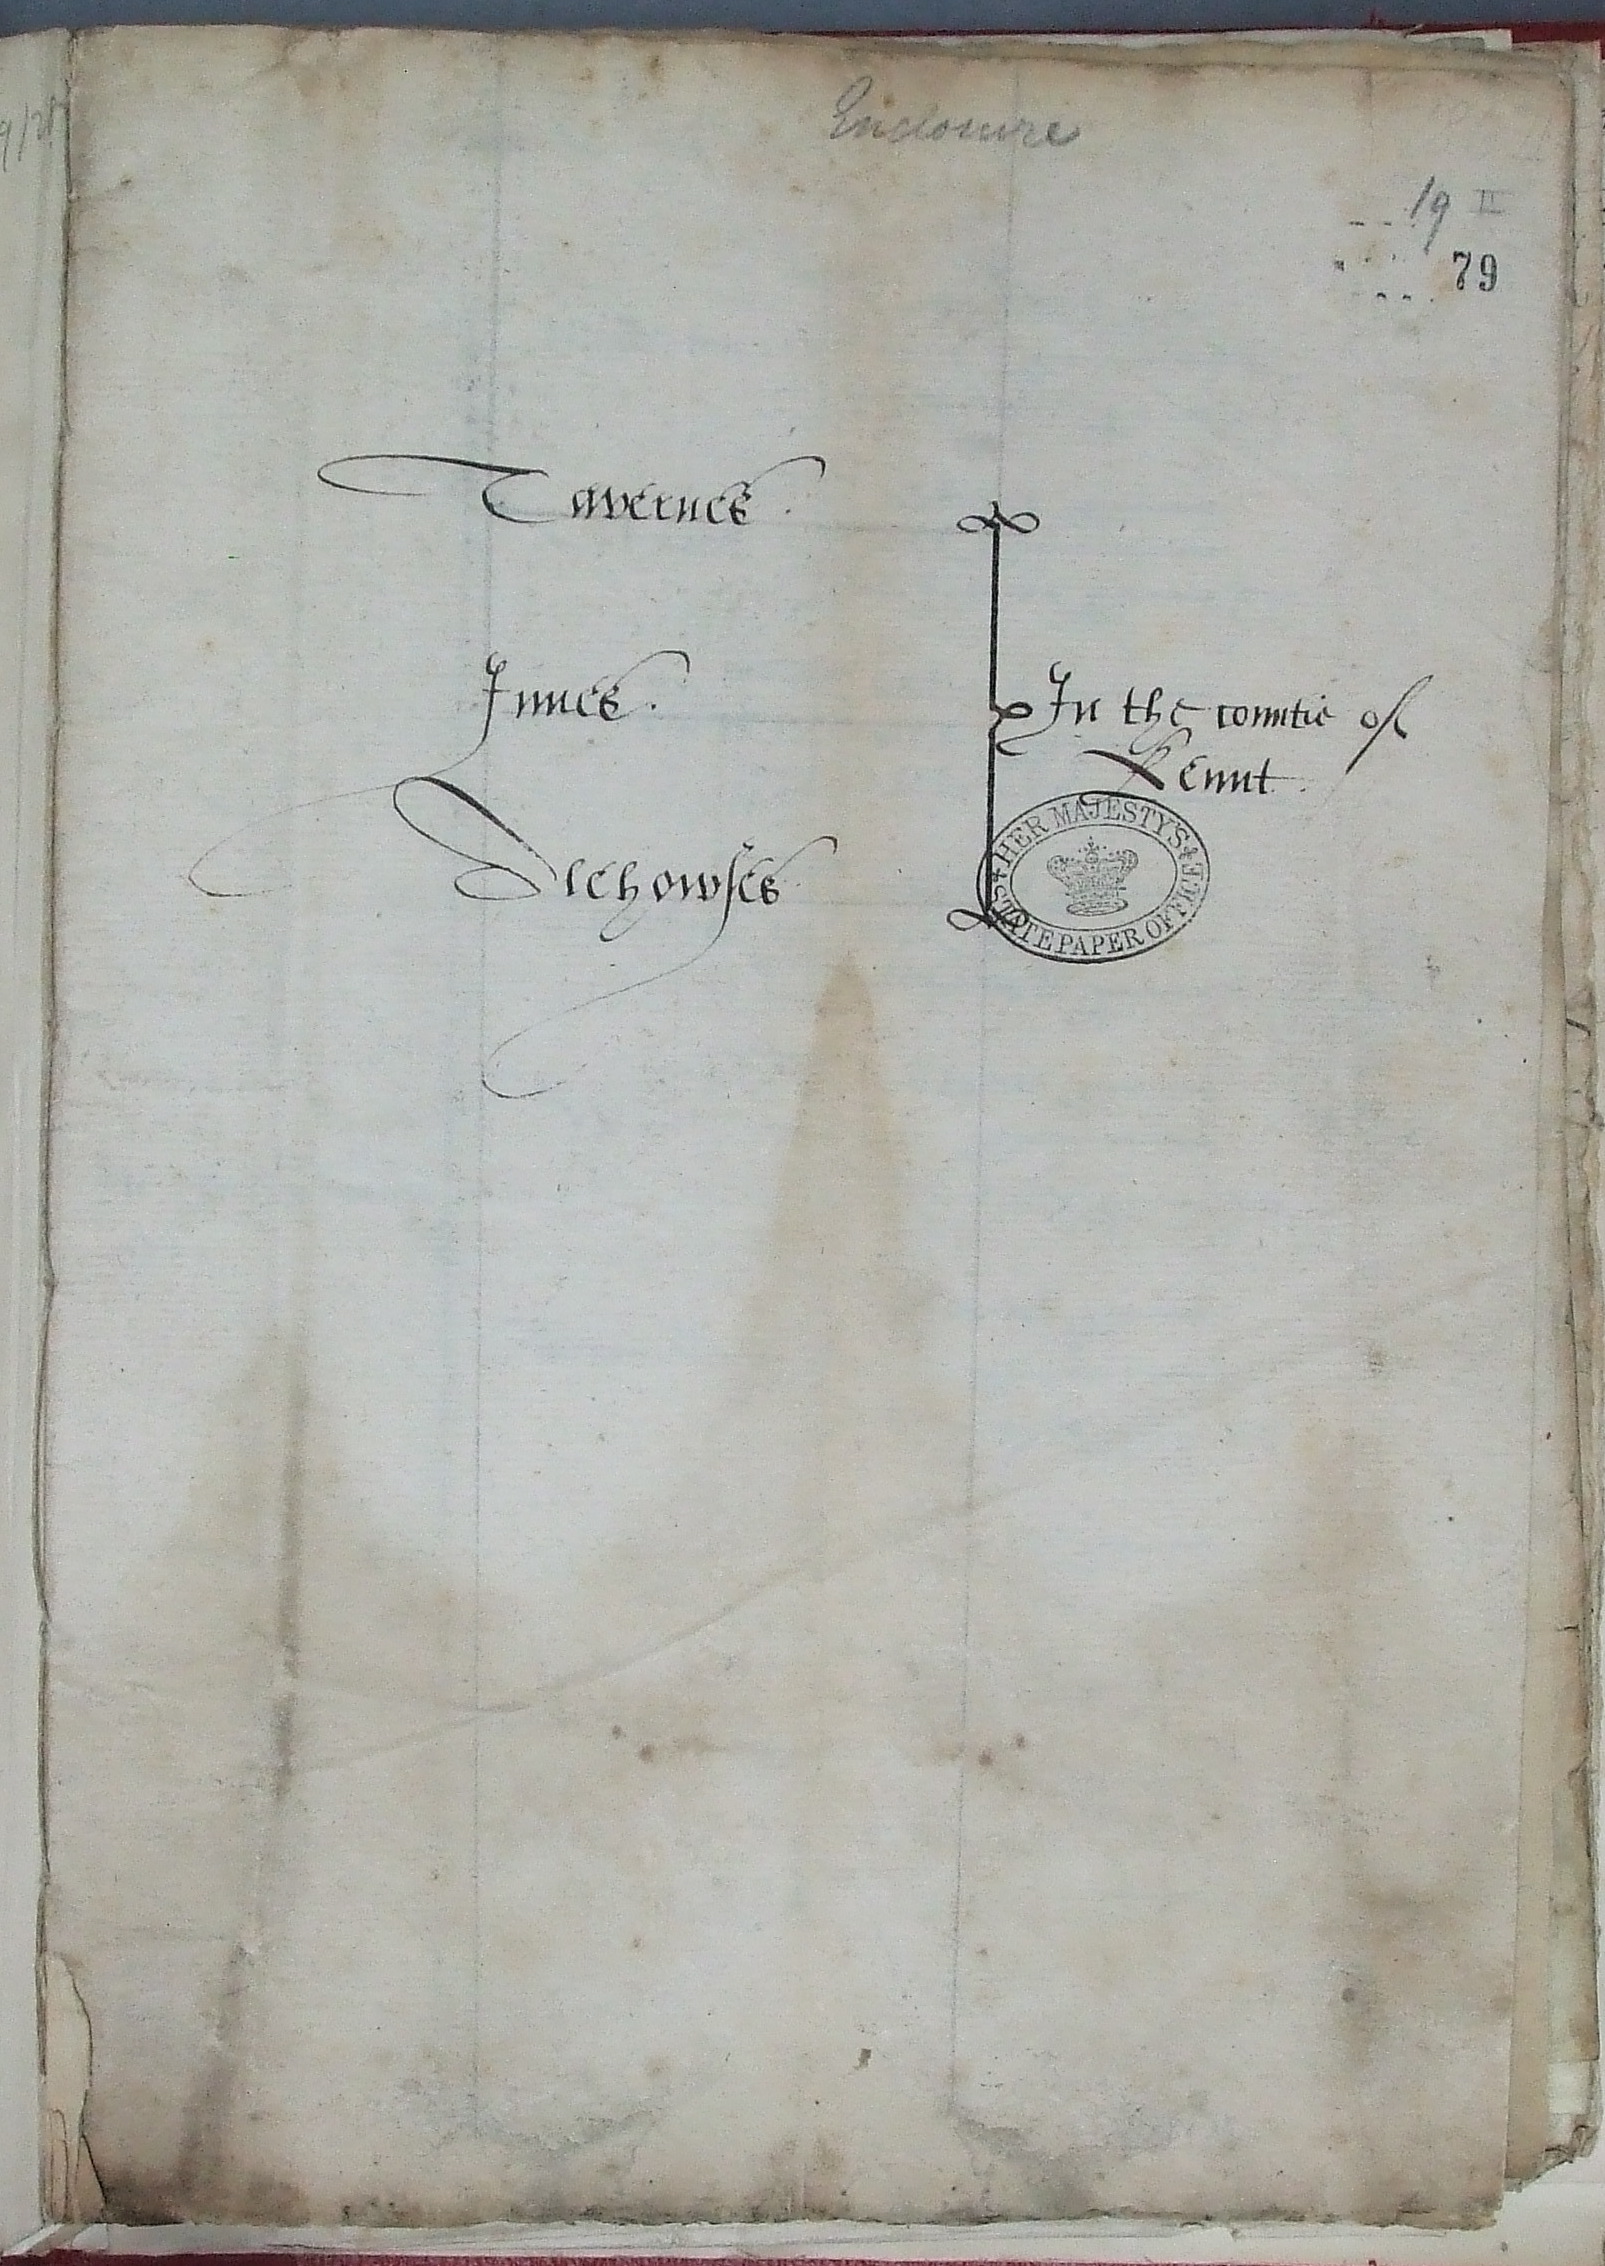 Enclosure
19 II
79
Tavernes.
Innes.
Alehowses
In the countie of
Kennt.
HER MAJESTY'S
STATE PAPER OFFICE